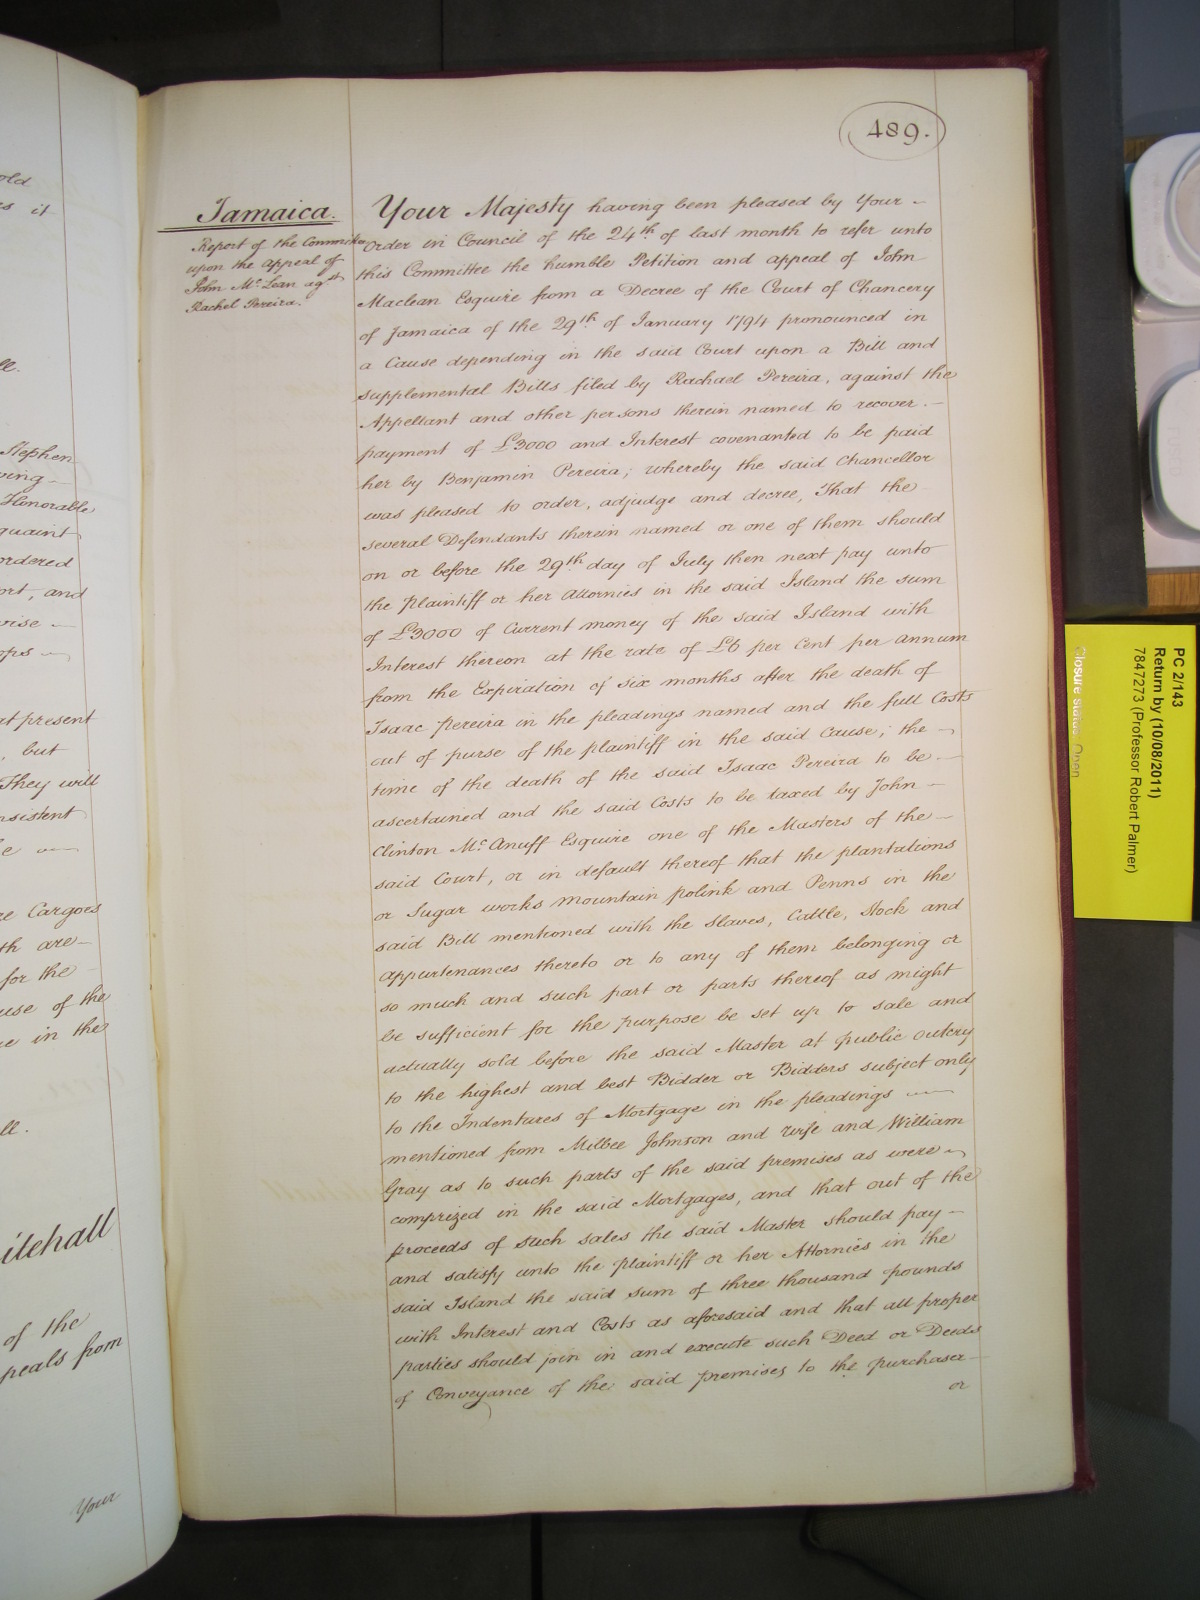 old
es it
ll.
Stephen
ving
Honorable
quaint
ordered
ort, and
wise
ops
at present
, but
They will
nsistent
e
re Cargoes
th are
for the
use of the
re in the
ll.
itehall
of the
peals from
Your
489.
Jamaica.
Report of the Committee
upon the appeal of
John Mc. Lean agst.
Rachel Pereira.
Your Majesty having been pleased by Your
Order in Council of the 24th of last month to refer unto
this Committee the humble Petition and appeal of John
Maclean Esquire from a Decree of the Court of Chancery
of Jamaica of the 29th of January 1794 pronounced in
a Cause depending in the said Court upon a Bill and
supplemental Bills filed by Rachael Pereira, against the
Appellant and other persons therein named to recover
payment of £3000 and Interest covenanted to be paid
her by Benjamin Pereira; whereby the said Chancellor
was pleased to order, adjudge and decree, That the
several Defendants therein named or one of them should
on or before the 29th day of July then next pay unto
the Plaintiff or her Attornies in the said Island the sum
of £3000 of Current money of the said Island with
Interest thereon at the rate of £6 per Cent per annum
from the Expiration of six months after the death of
Isaac Pereira in the pleadings named and the full Costs
out of purse of the plaintiff in the said Cause; the
time of the death of the said Isaac Pereira to be
ascertained and the said Costs to be taxed by John
Clinton Mc. Anuff Esquire one of the Masters of the
said Court, or in default thereof that the plantations
or Sugar works mountain polink and Penns in the
said Bill mentioned with the Slaves, Cattle, Stock and
appurtenances thereto or to any of them belonging or
so much and such part or parts thereof as might
be sufficient for the purpose be set up to sale and
actually sold before the said Master at public outcry
to the highest and best Bidder or Bidders subject only
to the Indentures of Mortgage in the pleadings
mentioned from Milbee Johnson and wife and William
Gray as to such parts of the said premises as were
comprized in the said Mortgages, and that out of the
proceeds of such sales the said Master should pay
and satisfy unto the plaintiff or her Attornies in the
said Island the said sum of three thousand pounds
with Interest and Costs as aforesaid and that all proper
parties should join in and execute such Deed or Deeds
of Conveyance of the said premises to the purchaser
or
PC 2/143
Return by (10/08/2011)
7847273 (Professor Robert Palmer)
Closure status: Open